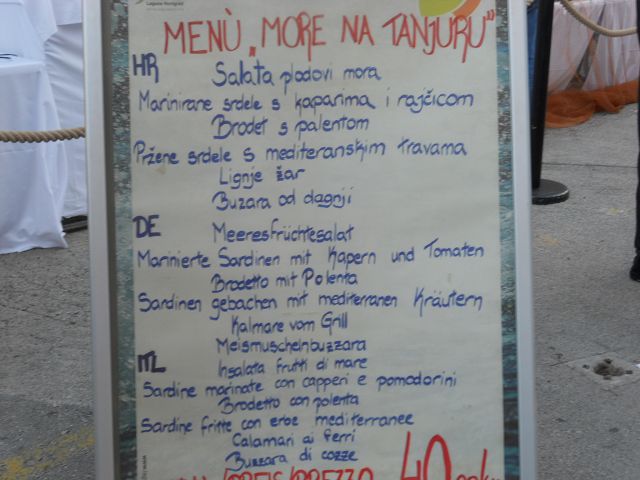 Laguna Novigrad
MENÙ „MORE NA TANJURU”
HR
Salata plodovi mora
Marinirane srdele s kaparima i rajčicom
Brodet s palentom
Pržene srdele s mediteranskim travama
Lignje žar
Buzara od dagnji
DE
Meeresfrüchtesalat
Marinierte Sardinen mit Kapern und Tomaten
Brodetto mit Polenta
Sardinen gebachen mit mediterranen Kräutern
Kalmare vom Grill
Meismuscheinbuzzara
ITL
Insalata frutti di mare
Sardine marinate con capperi e pomodorini
Brodetto con polenta
Sardine fritte con erbe mediterranee
Calamari ai ferri
Buzzara di cozze
/PREIS/PREZZO 40